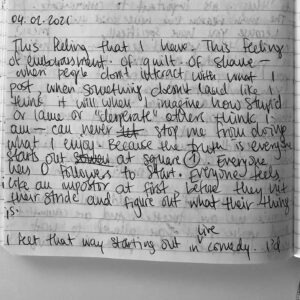 04.01.2021
This feeling that I have. This feeling
of embarrassment. of guilt. of shame –
when people don't interact with what I
post, when something doesn't land like I
think it will when I imagine how stupid
or lame or "desperate" others think I
am – can never stop me from doing
what I enjoy. Because the truth is everyone
starts out at square 1. Everyone
has 0 followers to start. Everyone feels
like an impostor at first, before they hit
their stride and figure out what their thing
is.
I felt that way starting out in live comedy. I'd